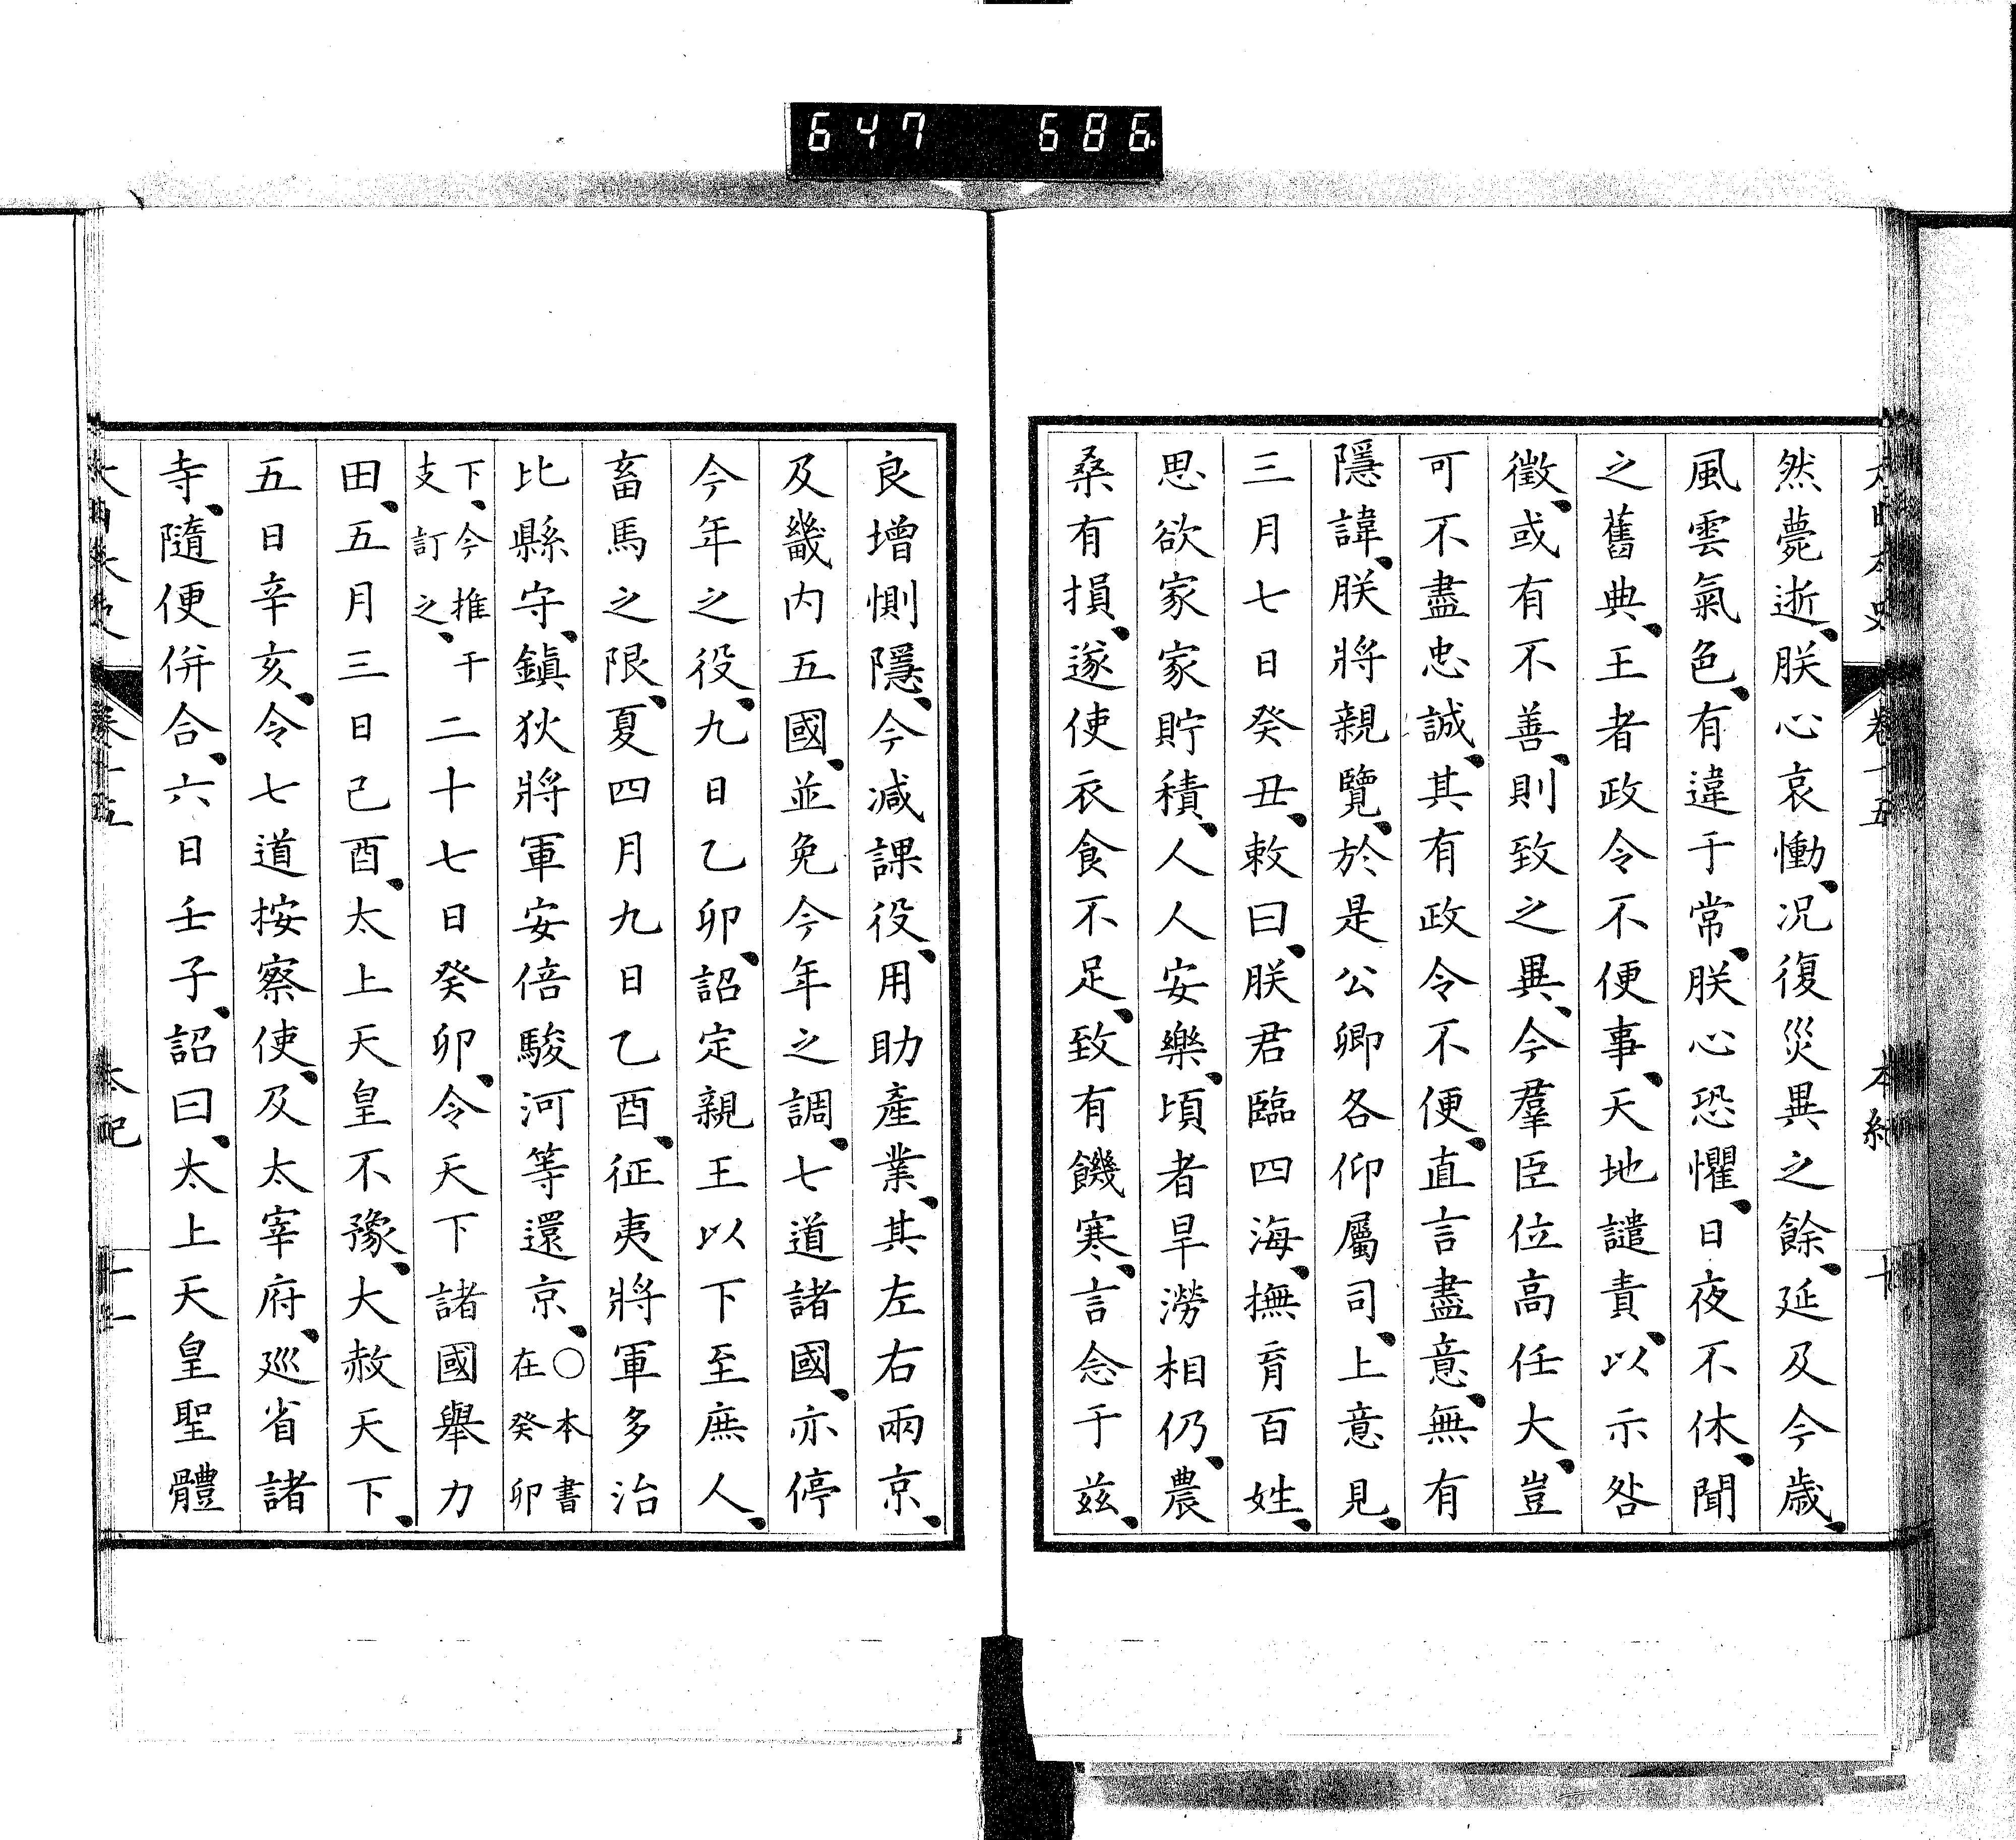 647 686.
大日本史 卷十五 本紀 十
然薨逝、朕心哀慟、況復災異之餘、延及今歲、
風雲氣色、有違于常、朕心恐懼、日夜不休、聞
之舊典、王者政令不便事、天地譴責、以示咎
徵、或有不善、則致之異、今羣臣位高任大、豈
可不盡忠誠、其有政令不便、直言盡意、無有
隱諱、朕將親覽、於是公卿各仰屬司、上意見、
三月七日癸丑、敕曰、朕君臨四海、撫育百姓、
思欲家家貯積、人人安樂、頃者旱澇相仍、農
桑有損、遂使衣食不足、致有饑寒、言念于茲、
良增惻隱、今減課役、用助產業、其左右兩京、
及畿内五國、並免今年之調、七道諸國、亦停
今年之役、九日乙卯、詔定親王以下至庶人、
畜馬之限、夏四月九日乙酉、征夷將軍多治
比縣守、鎮狄將軍安倍駿河等還京、○本書在癸卯
下、今推干支訂之、二十七日癸卯、令天下諸國舉力
田、五月三日己酉、太上天皇不豫、大赦天下、
五日辛亥、令七道按察使、及太宰府、巡省諸
寺、隨便併合、六日壬子、詔曰、太上天皇聖體
大日本史 卷十五 本紀 十一